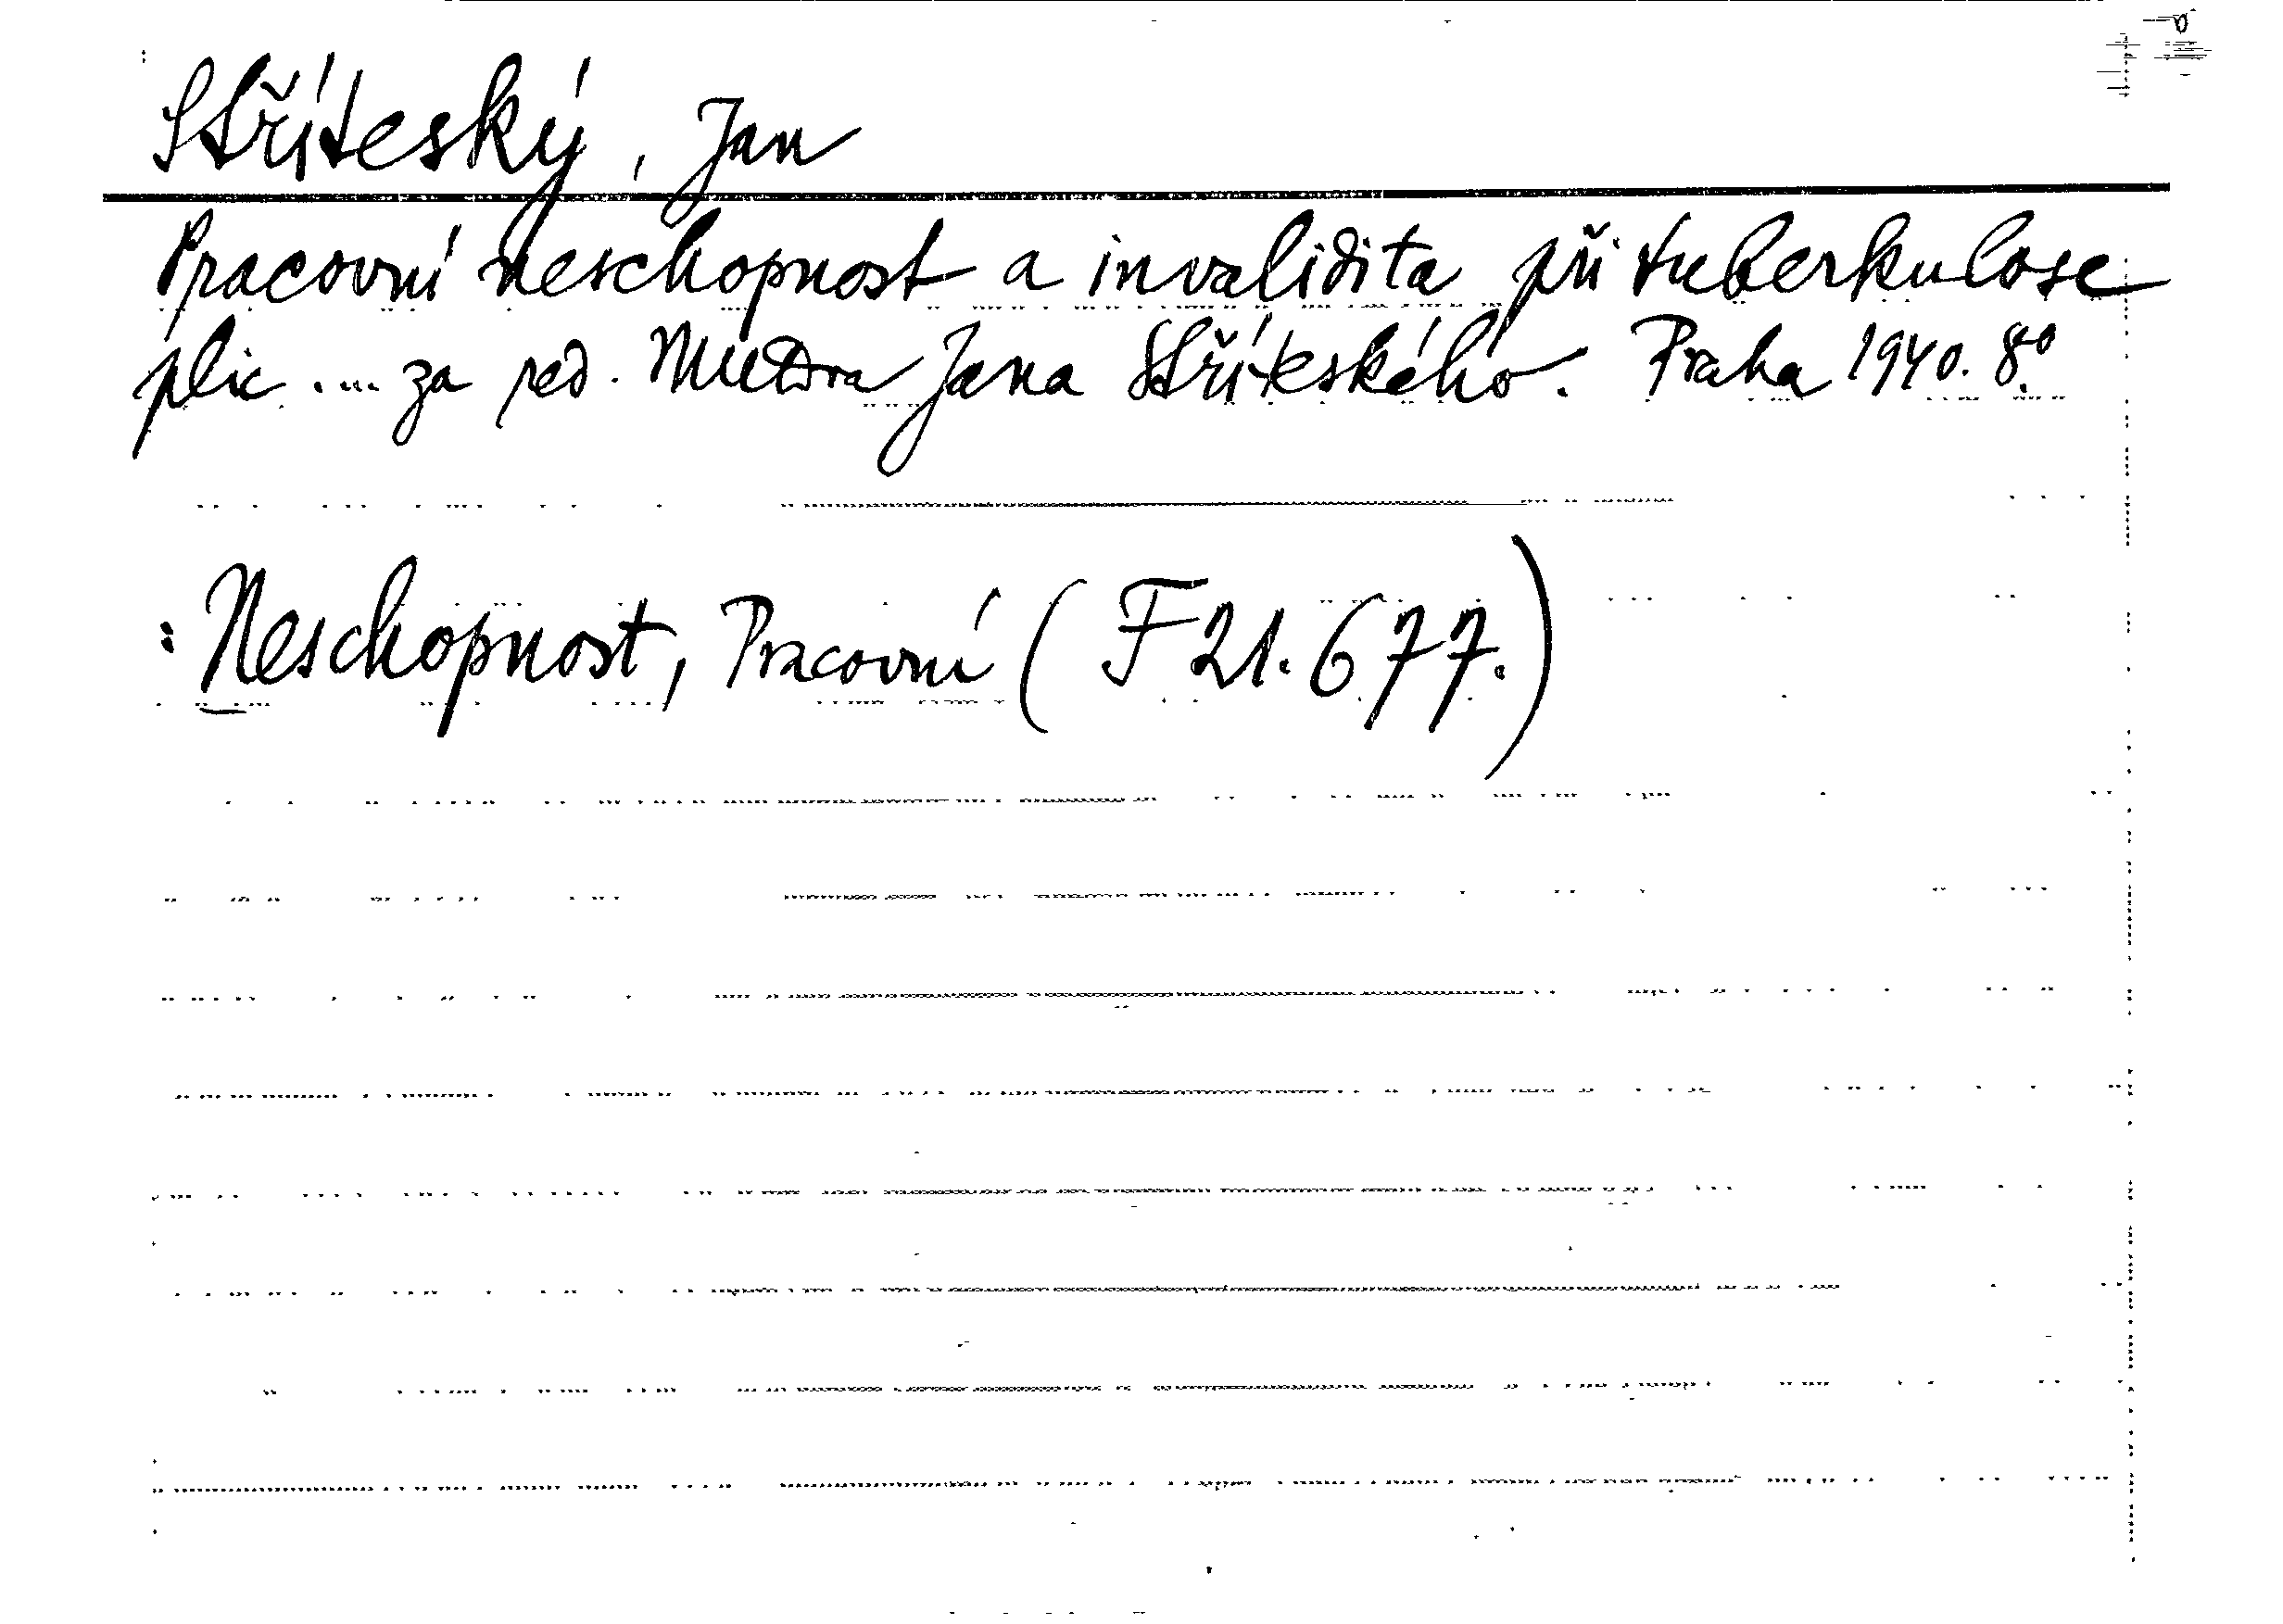 Stříteský, Jan
Pracovní neschopnost a invalidita při tuberkulose
plic .... za red. MUDra Jana Stříteského. Praha 1940. 8°.
: Neschopnost, Pracovní (F 21.677.)